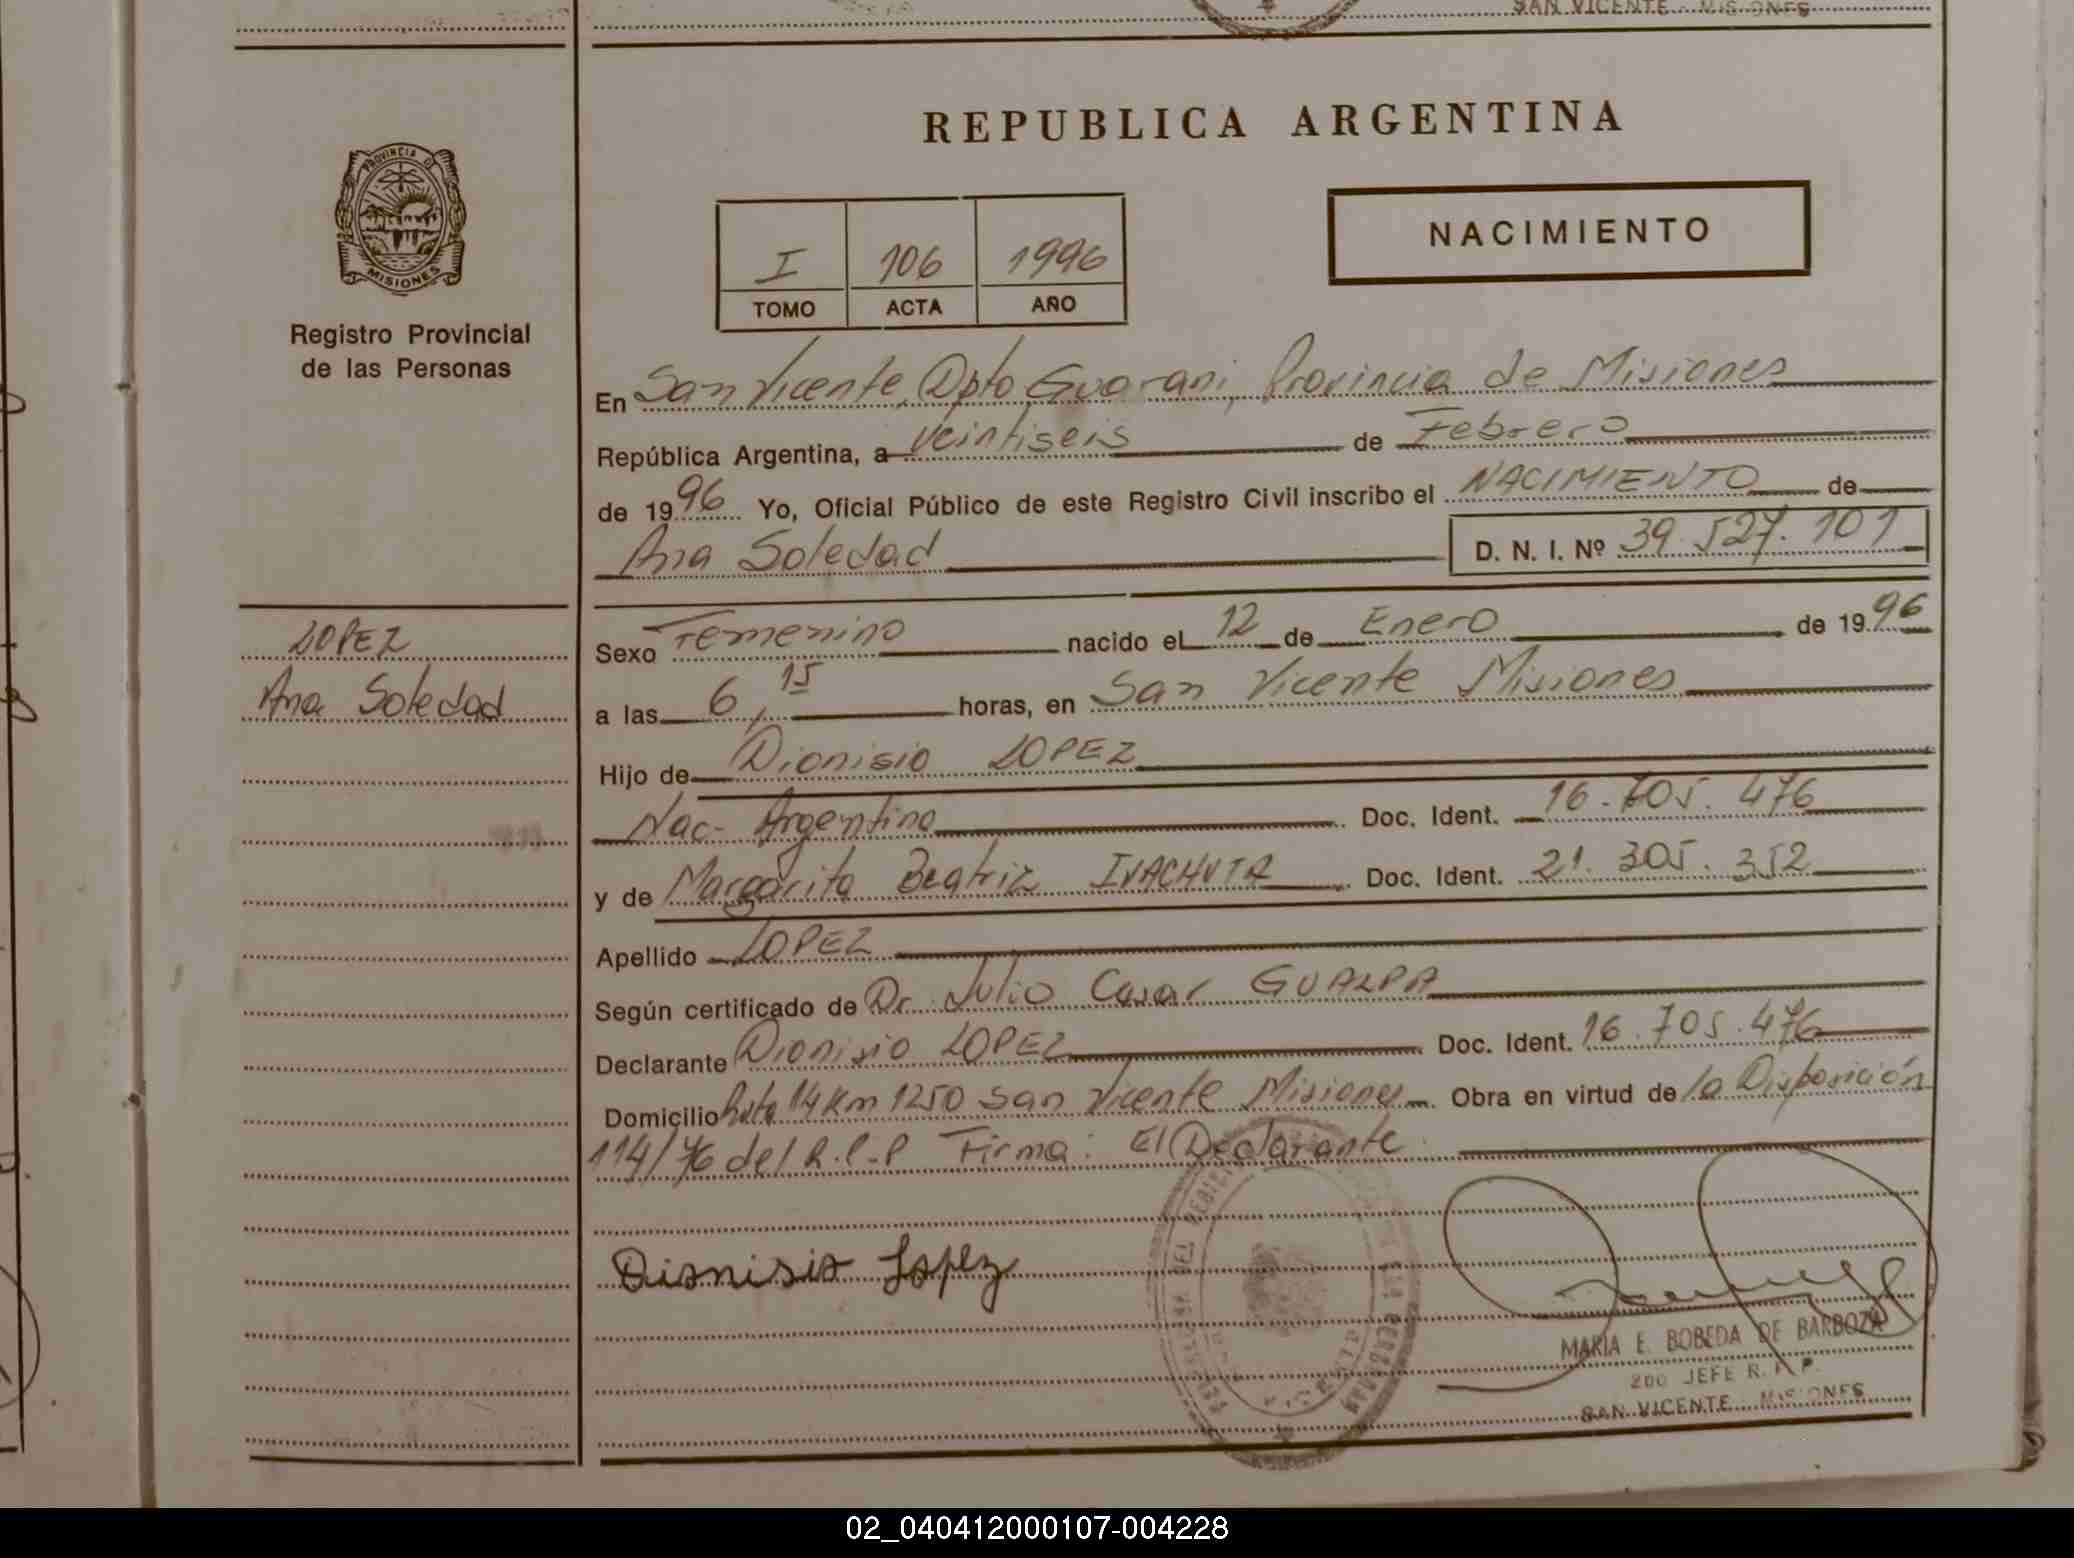 SAN VICENTE - MISIONES
REPUBLICA ARGENTINA
PROVINCIA D
MISIONES
Registro Provincial
de las Personas
I 106 1996
TOMO ACTA AÑO
NACIMIENTO
En San Vicente, Dpto Guarani, Provincia de Misiones
República Argentina, a veintiseis de Febrero
de 1996 Yo, Oficial Público de este Registro Civil inscribo el NACIMIENTO de
Ana Soledad D. N. I. Nº 39.527.101
LOPEZ
Ana Soledad
Sexo Femenino nacido el 12 de Enero de 1996
a las 6,15 horas, en San Vicente Misiones
Hijo de Dionisio LOPEZ
Nac- Argentina Doc. Ident. 16.705.476
y de Margarita Beatriz Doc. Ident. 21.305.352
Apellido LOPEZ
Según certificado de Dr. Julio Cesar GUALPA
Declarante Dionisio LOPEZ Doc. Ident. 16.705.476
Domicilio Ruta 14 Km 1250 San Vicente Misiones Obra en virtud de la Disposición
114/76 del R.P.P Firma: El Declarante
Dionisio Lopez
MARIA E. BOBEDA DE BARBOZA
JEFE R. P. P.
SAN VICENTE - MISIONES
02_040412000107-004228